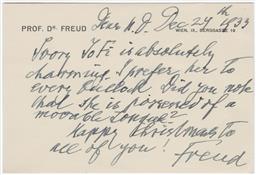 Dear H. D. Dec 24th 1933
PROF. DR. FREUD WIEN, IX., BERGGASSE 19
Ivory Yofi is absolutely
charming. I prefer her to
every bullock Did you note
that she is possessed of a
movable tongue?
Happy Christmas to
all of you!
Freud